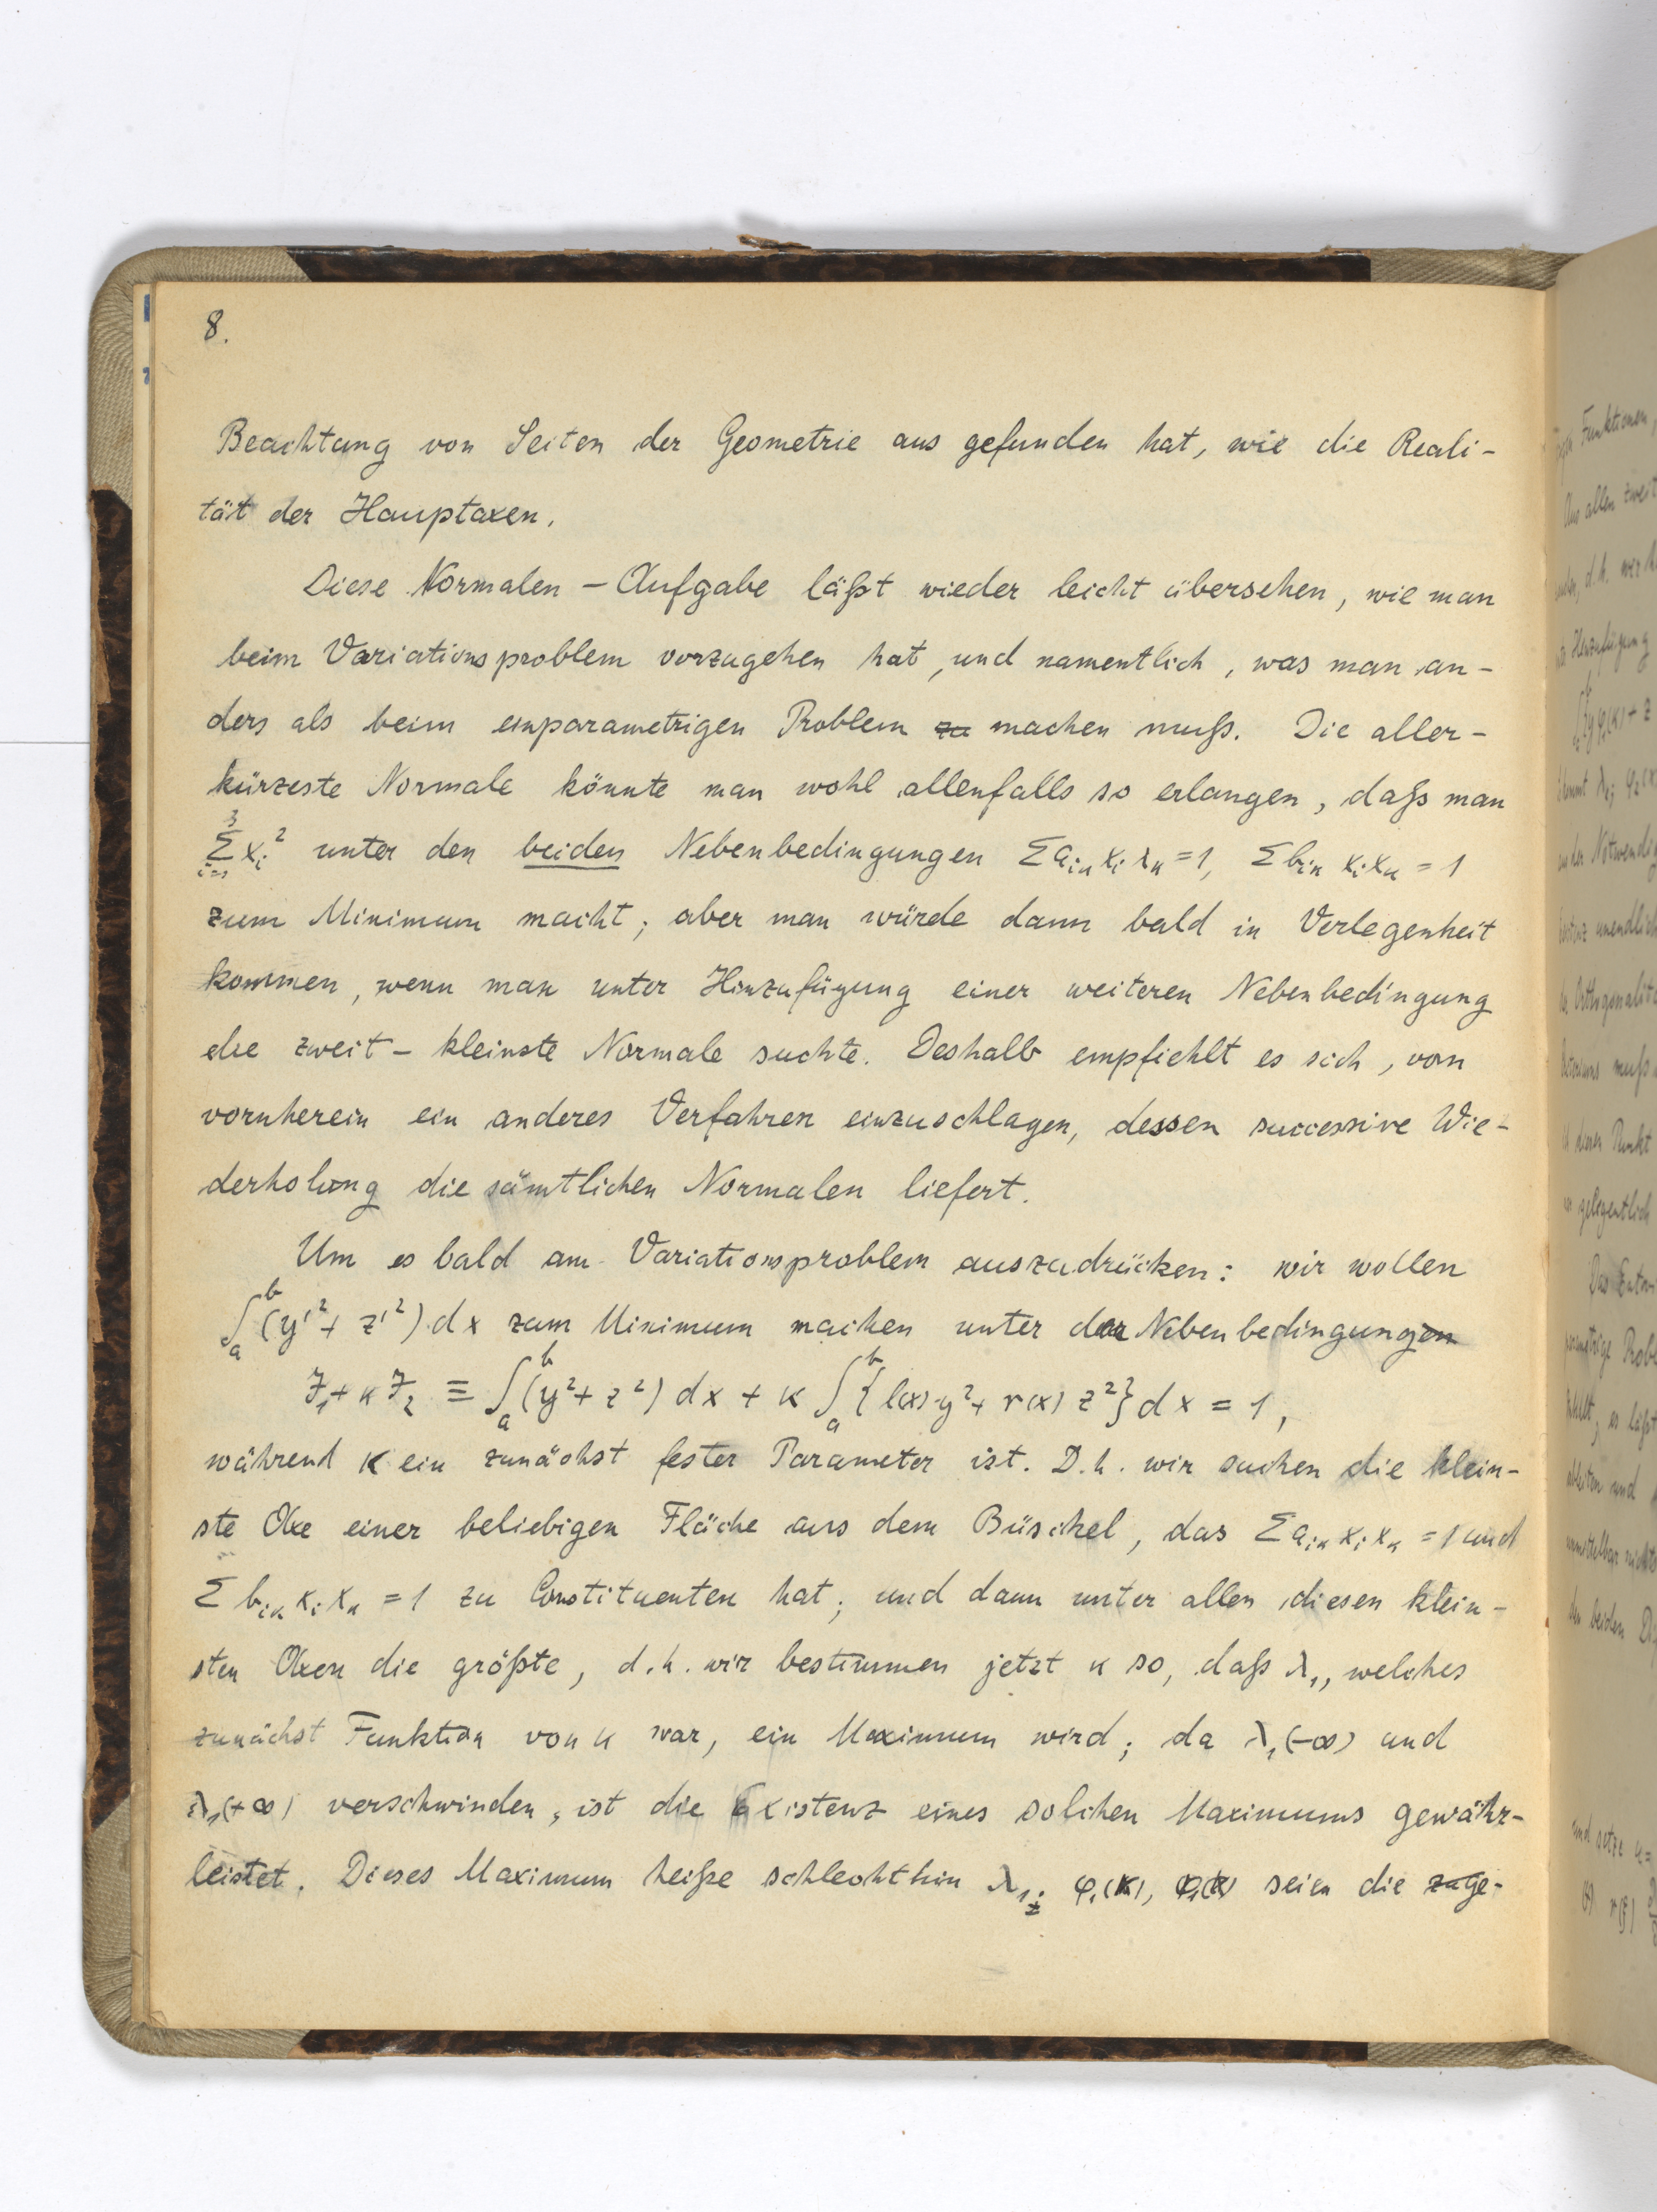 8.
Beachtung von Seiten der Geometrie aus gefunden hat, wie die Reali-
tät der Hauptaxen.
Diese Normalen - Aufgabe läßt wieder leicht übersehen, wie man
beim Variationsproblem vorzugehen hat, und namentlich, was man an-
ders als beim einparametrigen Problem zu machen muß. Die aller-
kürzeste Normale könnte man wohl allenfalls so erlangen, daß man
∑_{i=1}^{3} x_i² unter den beiden Nebenbedingungen Σ a_{iκ} x_i x_κ = 1, Σ b_{iκ} x_i x_κ = 1
zum Minimum macht; aber man würde dann bald in Verlegenheit
kommen, wenn man unter Hinzufügung einer weiteren Nebenbedingung
die zweit - kleinste Normale suchte. Deshalb empfiehlt es sich, von
vornherein ein anderes Verfahren einzuschlagen, dessen successive Wie-
derholung die sämtlichen Normalen liefert.
Um es bald am Variationsproblem auszudrücken: wir wollen
∫_a^b (y'² + z'²) dx zum Minimum machen unter der Nebenbedingungen
J₁ + κ J₂ ≡ ∫_a^b (y² + z²) dx + κ ∫_a^b {l(x) y² + r(x) z²} dx = 1,
während κ ein zunächst fester Parameter ist. D.h. wir suchen die klein-
ste Axe einer beliebigen Fläche aus dem Büschel, das Σ a_{iκ} x_i x_κ = 1 und
Σ b_{iκ} x_i x_κ = 1 zu Constituenten hat; und dann unter allen diesen klein-
sten Axen die größte, d.h. wir bestimmen jetzt κ so, daß λ₁, welches
zunächst Funktion von κ war, ein Maximum wird; da λ₁(-∞) und
λ₁(+∞) verschwinden, ist die Existenz eines solchen Maximums gewähr-
leistet. Dieses Maximum heiße schlechthin λ₁; φ₁(x), seien die zuge-